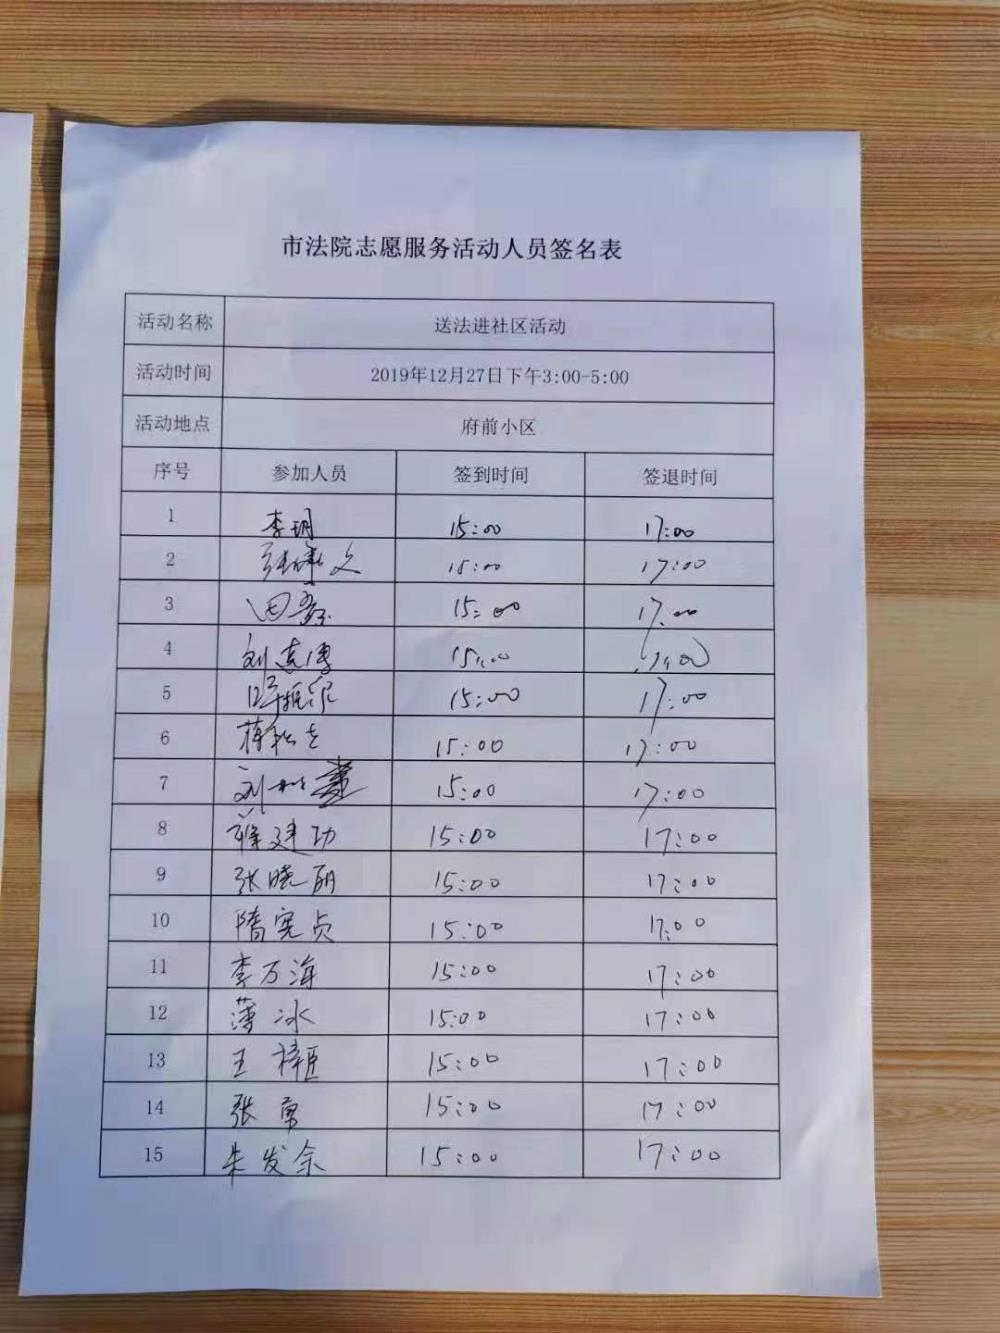 市法院志愿服务活动人员签名表
活动名称 送法进社区活动
活动时间 2019年12月27日下午3:00-5:00
活动地点 府前小区
序号 参加人员 签到时间 签退时间
1 李玥 15:00 17:00
2 15:00 17:00
3 田 15:00 17:00
4 刘 15:00 17:00
5 15:00 17:00
6 15:00 17:00
7 刘 15:00 17:00
8 建功 15:00 17:00
9 张晓丽 15:00 17:00
10 隋宪贞 15:00 17:00
11 李万海 15:00 17:00
12 薄冰 15:00 17:00
13 王 15:00 17:00
14 张勇 15:00 17:00
15 朱发余 15:00 17:00